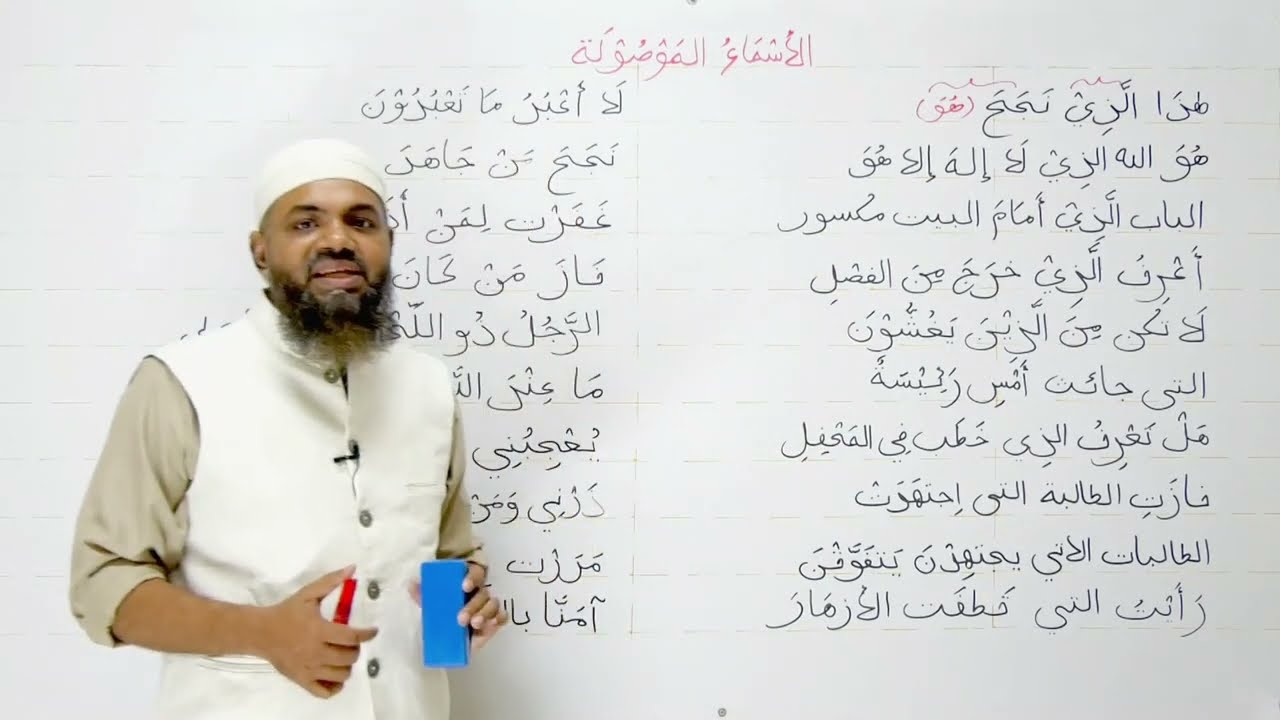 الأَسْمَاءُ المَوْصُوْلَة
هٰذَا الَّذِيْ نَجَحَ (هُوَ)
هُوَ الله الذِيْ لَا إِلهَ إِلا هُوَ
الباب الَّذِيْ أَمَامَ البيت مكسور
أَعْرِفُ الَّذِيْ خَرَجَ مِنَ الفصْلِ
لَا تَكُن مِنَ الَّذِيْنَ يَغُشُّوْنَ
التي جائت أَمْسِ رَئِيْسَةٌ
هَلْ تَعْرِفُ الذِي خَطَب فِي المَحْفِلِ
فازَتِ الطالبة التي اِجتهَدَتْ
الطالبات الاتي يجتهِدْنَ يَتَفَوَّقْنَ
رَأَيْتُ التي خَطفَت الأَزهَارَ
لَا أَعْبُدُ مَا تَعْبُدُوْنَ
نَجَحَ مَنْ جَاهَدَ
غَفَرْت لِمَنْ
فَازَ مَنْ كَانَ
الرَّجُلُ ذُو
مَا عِنْدَ
يُعْجِبُنِي
ذَرْنِي وَمَنْ
مَرَرْت
آمَنَّا